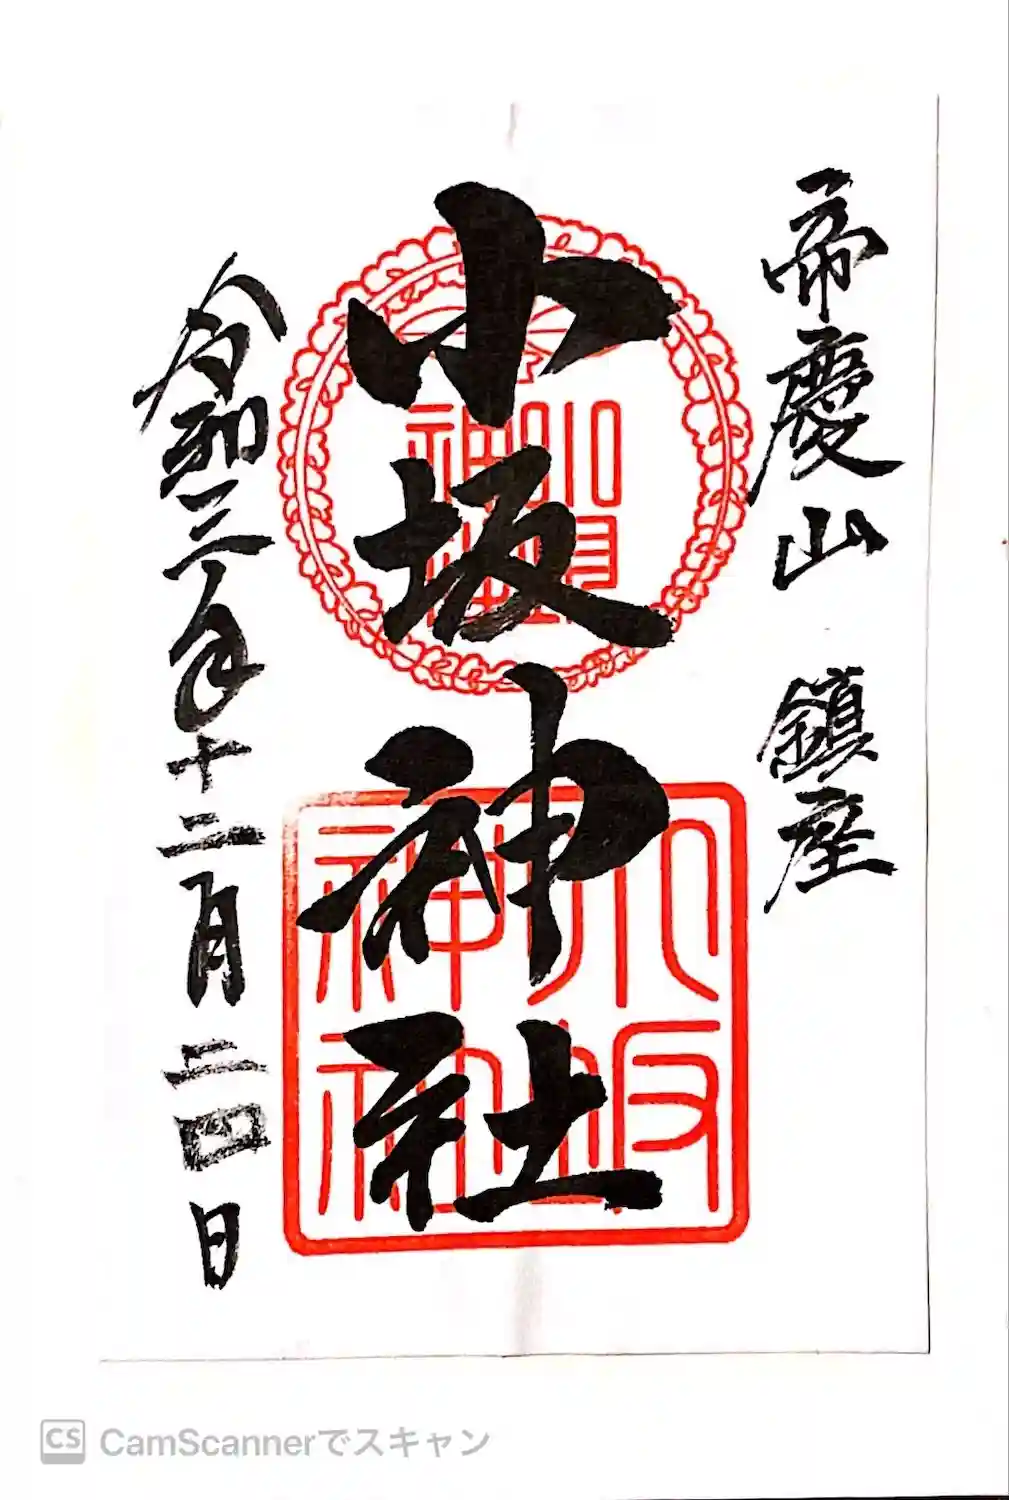 帝慶山 鎮座
小坂神社
小坂神社
令和三年十二月二四日
CS CamScannerでスキャン